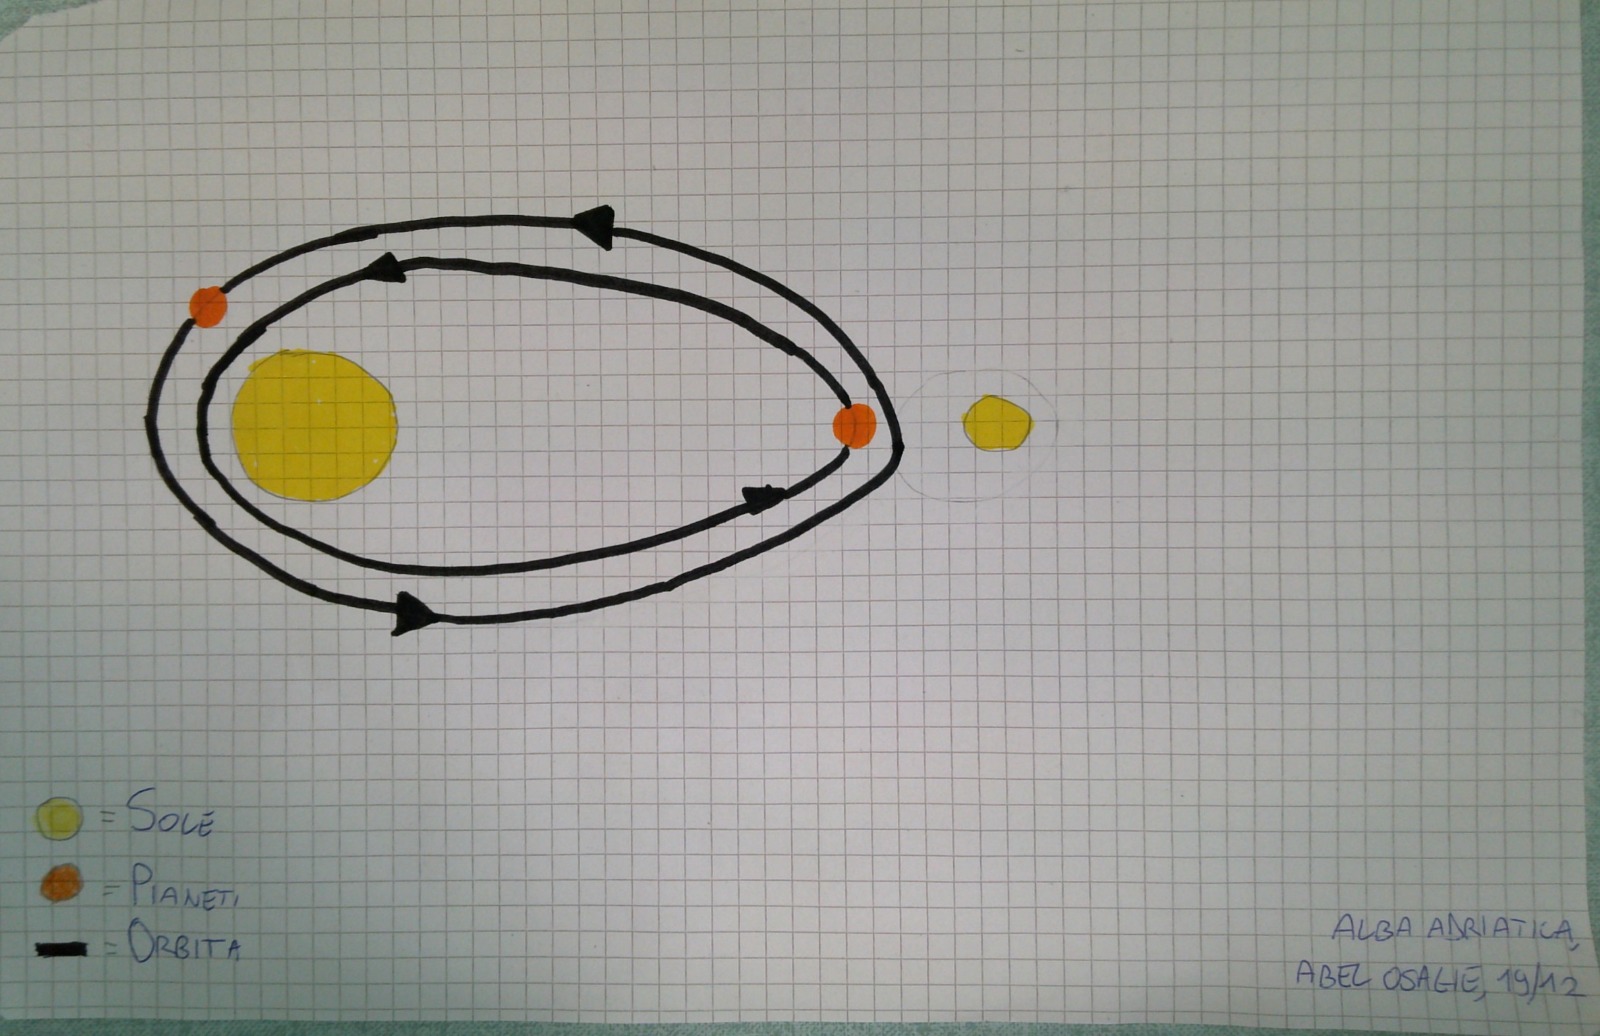 = SOLE
= PIANETI
= ORBITA
ALBA ADRIATICA,
ABEL OSAGIE, 19/12